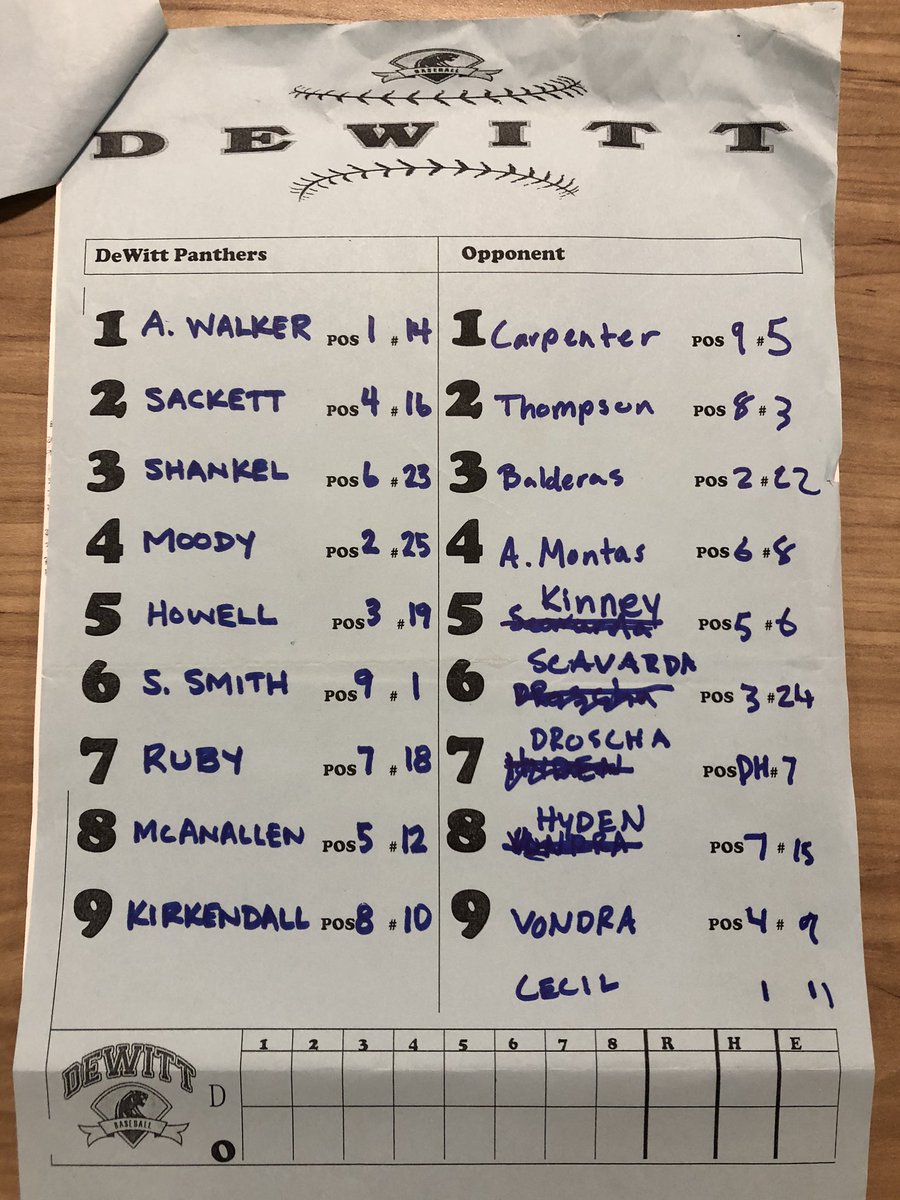 BASEBALL
DEWITT
DeWitt Panthers Opponent
1 A. WALKER POS 1 # 14 1 Carpenter POS 9 # 5
2 SACKETT POS 4 # 16 2 Thompson POS 8 # 3
3 SHANKEL POS 6 # 23 3 Balderas POS 2 # 22
4 MOODY POS 2 # 25 4 A. Montas POS 6 # 8
5 HOWELL POS 3 # 19 5 Kinney POS 5 # 6
6 S. SMITH POS 9 # 1 6 SCAVARDA POS 3 # 24
7 RUBY POS 7 # 18 7 DROSCHA POS DH # 7
8 MCANALLEN POS 5 # 12 8 HYDEN POS 7 # 15
9 KIRKENDALL POS 8 # 10 9 VONDRA POS 4 # 9
CECIL 1 11
1 2 3 4 5 6 7 8 R H E
DEWITT
BASEBALL
D
O